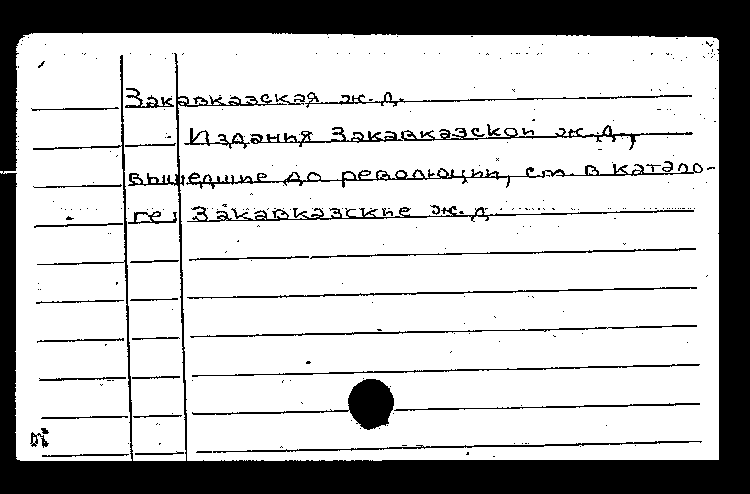 Закавказская ж.д.
Издания Закавказской ж.д.,
вышедшие до революции, см. в катало-
ге: Закавказские ж.д